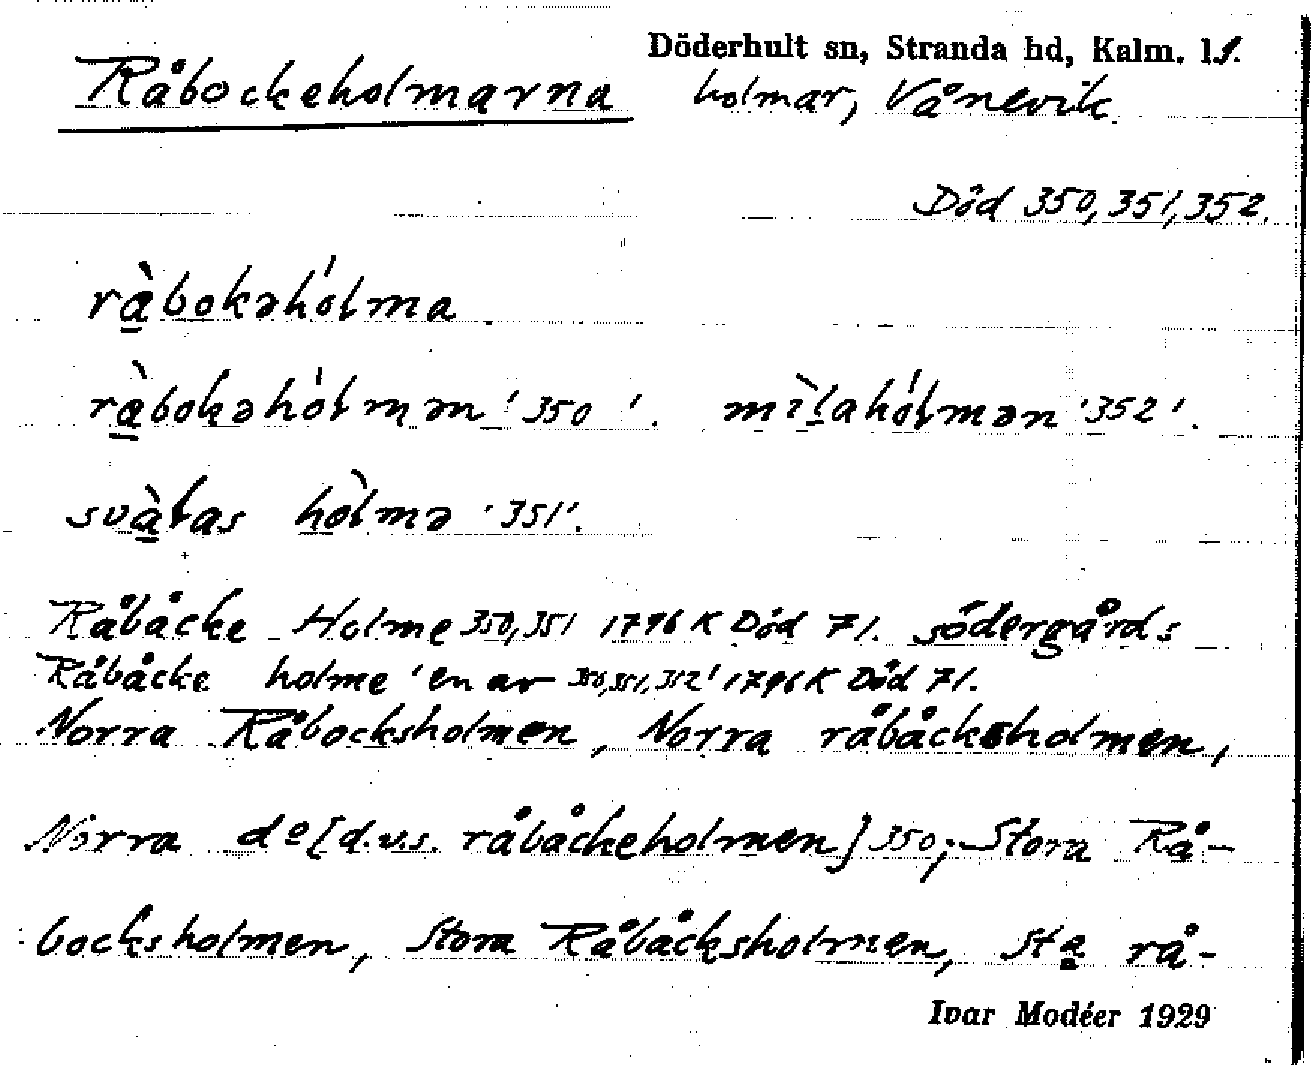 Döderhult sn, Stranda hd, Kalm. l.
Råbockeholmarna holmar, Vånevik.
Död 350, 351, 352.
ràbokəhólma
ràbokəhólmən '350'. mìlahólmən '352'.
svàłas hòlmə '351'.
Råbåcke Holme 350, 351 1796 K Död 71. södergårds
Råbåcke holme 'en ar 350, 351, 352' 1796 K Död 71.
Norra Råbocksholmen, Norra råbåcksholmen,
Norra do [d.v.s. råbåckeholmen] 350; Stora Rå-
bocksholmen, Stora Råbåcksholmen, Sta rå-
Ivar Modéer 1929